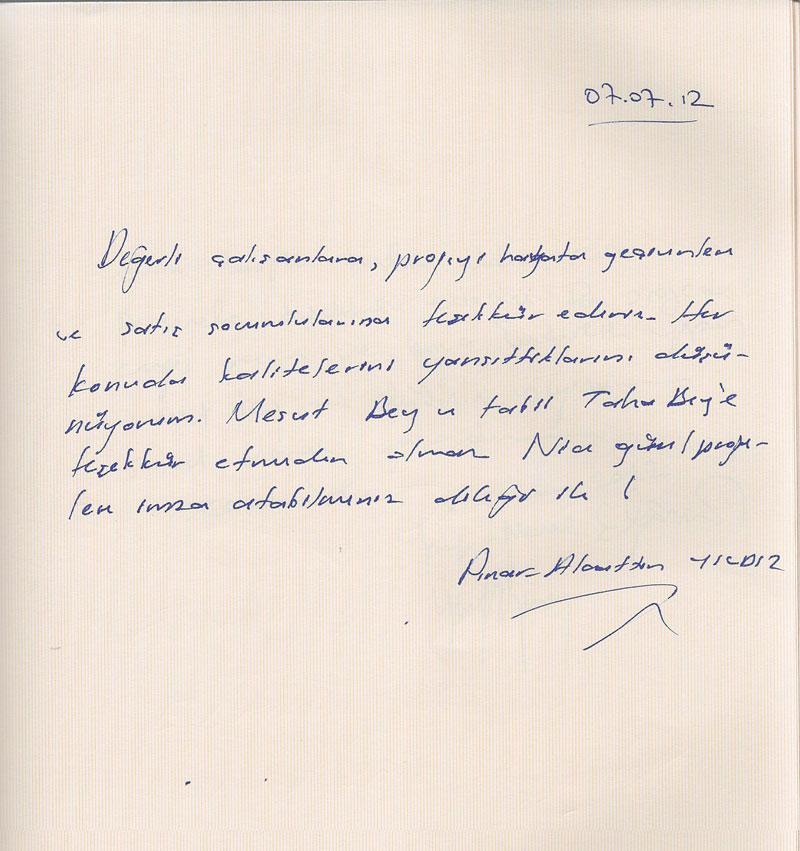 07.07.12
Değerli çalışanlara, projeyi hayata geçirenlere
ve satış sorumlularına teşekkür ederiz. Her
konuda kalitelerini yansıttıklarını düşü-
nüyorum. Mesut Bey'e tabii Taha Bey'e
teşekkür etmeden olmaz. Nice güzel proje-
lere imza atabilmeniz dileği ile!
Pınar-Alaettin YILDIZ